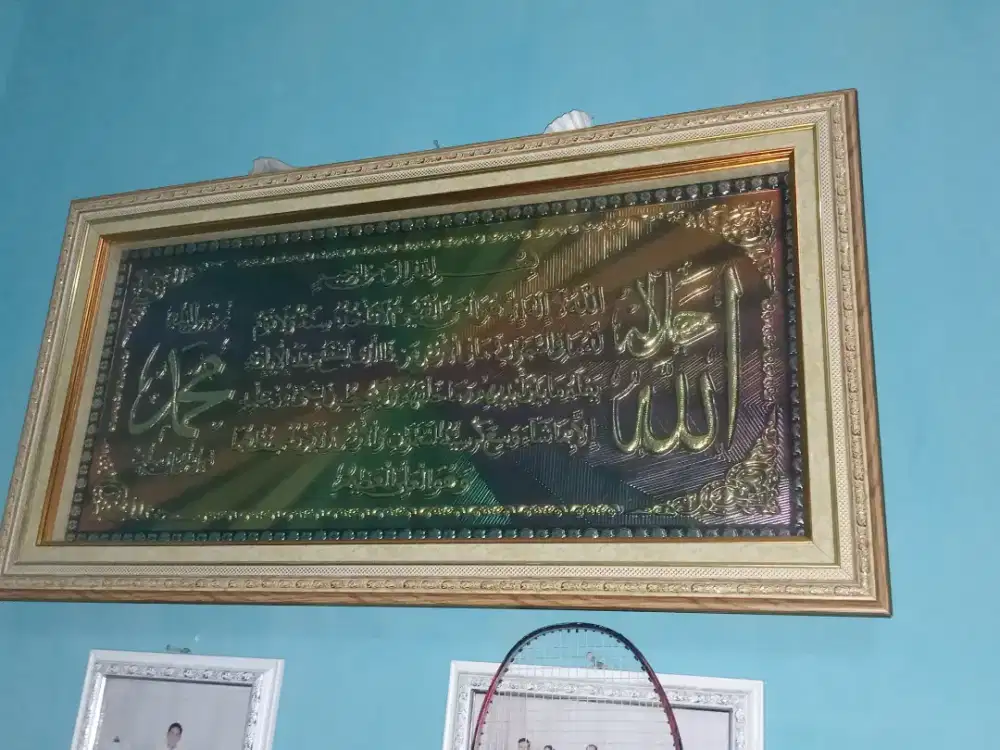 الله جل جلاله
بسم الله الرحمن الرحيم
الله لا إله إلا هو الحي القيوم لا تأخذه سنة ولا نوم
له ما في السموات وما في الأرض من ذا الذي يشفع عنده إلا بإذنه
يعلم ما بين أيديهم وما خلفهم ولا يحيطون بشيء من علمه
إلا بما شاء وسع كرسيه السموات والأرض ولا يؤده حفظهما
وهو العلي العظيم
محمد